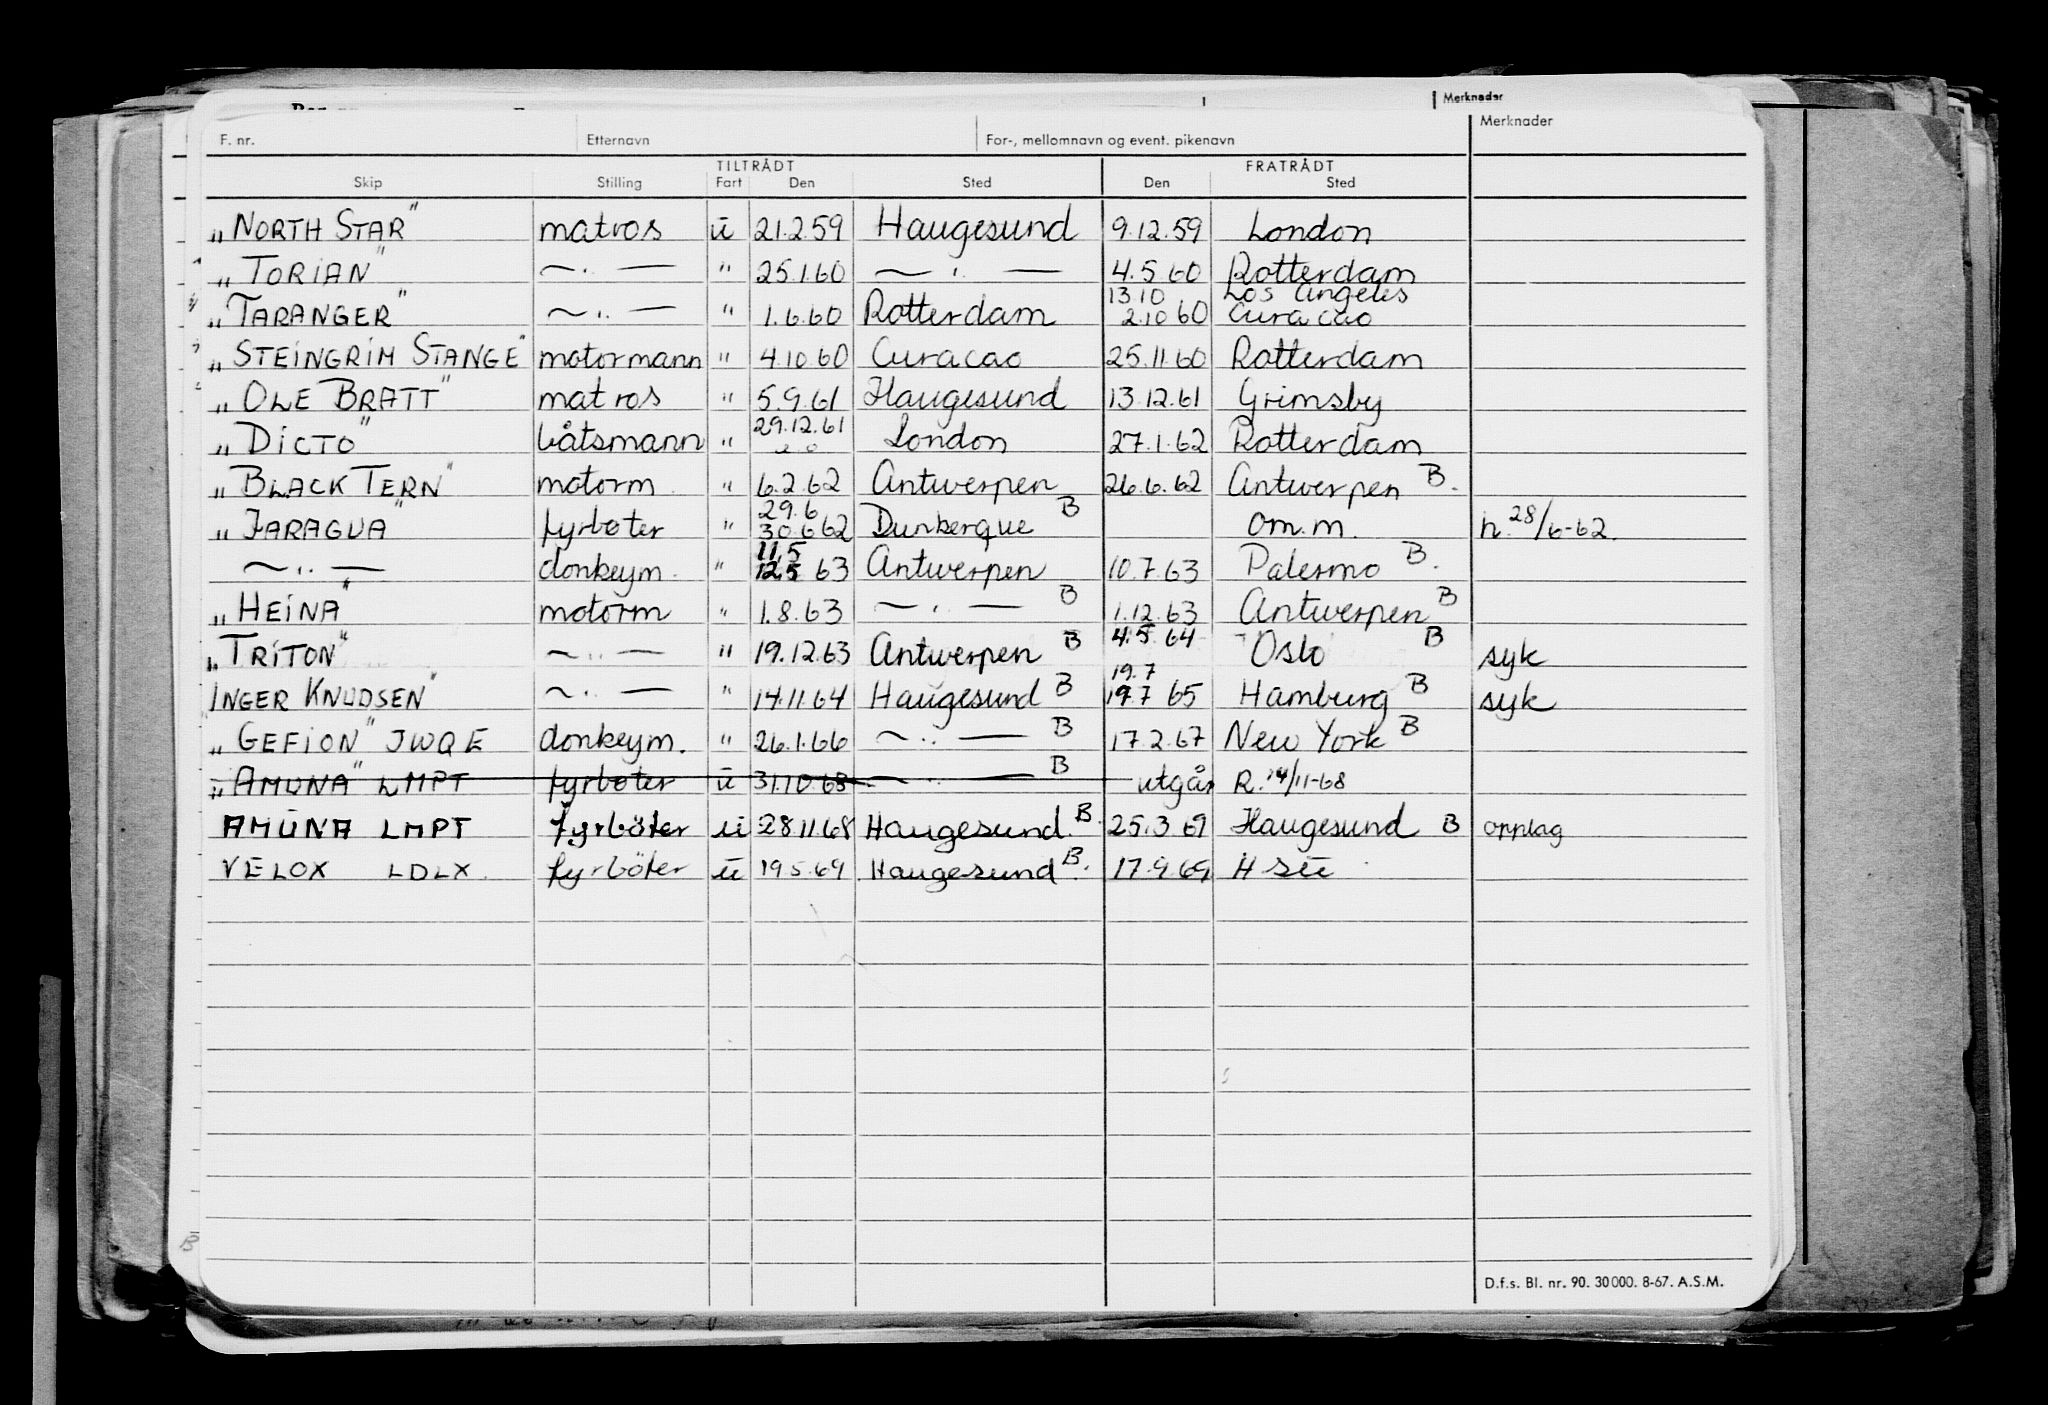 Merknader
F. nr. Etternavn For-, mellomnavn og event. pikenavn Merknader
TILTRÅDT FRATRÅDT
Skip Stilling Fart Den Sted Den Sted
„NORTH STAR" matros ü 21.2.59 Haugesund 9.12.59 London
„TORIAN" ~ „ — " 25.1.60 ~ „ — 4.5.60 Rotterdam
13.10 Los Angeles
„TARANGER" ~ „ — " 1.6.60 Rotterdam 2.10 60 Curacao
„STEINGRIM STANGE" motormann " 4.10.60 Curacao 25.11.60 Rotterdam
„OLE BRATT" matros " 5.9.61 Haugesund 13.12.61 Grimsby
„DICTO" båtsmann " 29.12.61 London 27.1.62 Rotterdam
„BLACK TERN" motorm. " 6.2.62 Antwerpen 26.6.62 Antwerpen B.
29.6
„JARAGUA" fyrbøter " 30.6 62 Dunkerque B om.m. h. 28/6-62.
11.5
~ „ — donkeym. " 12.5 63 Antwerpen 10.7.63 Palermo B.
„HEINA" motorm " 1.8.63 ~ „ — B 1.12.63 Antwerpen B
„TRITON" ~ „ — " 19.12.63 Antwerpen B 4.5.64 Oslo B syk
19.7
„INGER KNUDSEN" ~ „ — " 14.11.64 Haugesund B 19.7 65 Hamburg B syk
„GEFION" JWQE donkeym. " 26.1.66 ~ „ — B 17.2.67 New York B
„AMUNA" LMPT fyrbøter ü 31.10.68 ~ „ — B utgår R. 14/11-68
AMUNA LMPT fyrböter ü 28.11.68 Haugesund B. 25.3 69 Haugesund B opplag
VELOX LDLX. fyrböter ü 19.5.69 Haugesund B. 17.9.69 H sü
B
D.f.s. Bl. nr. 90. 30 000. 8-67. A.S.M.